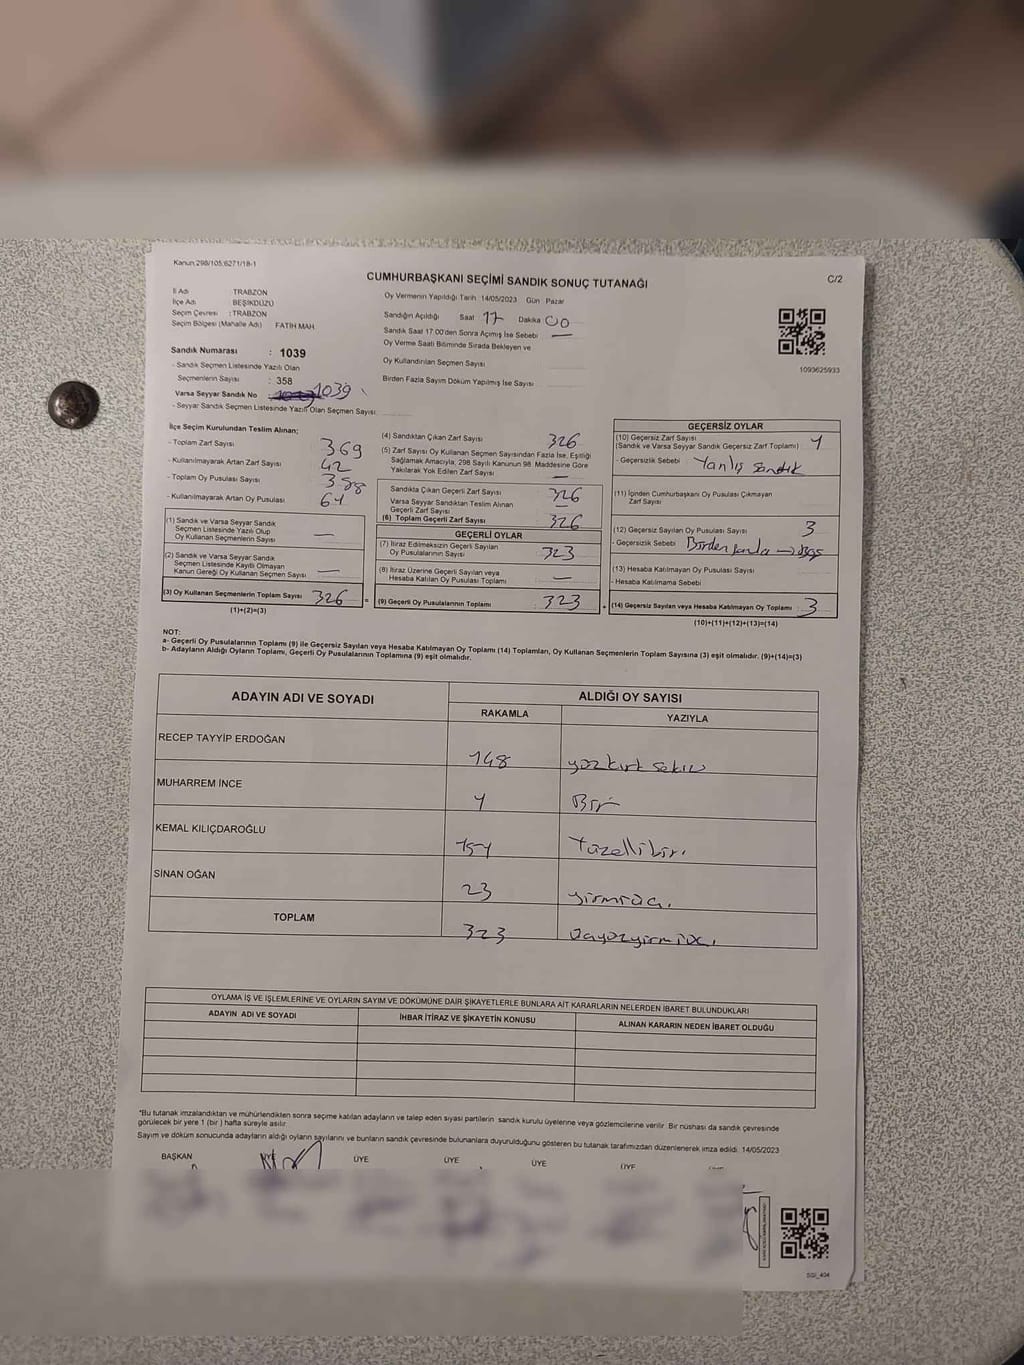 Kanun 298/105;6271/18-1
CUMHURBAŞKANI SEÇİMİ SANDIK SONUÇ TUTANAĞI
C/2
İl Adı : TRABZON
İlçe Adı : BEŞİKDÜZÜ
Seçim Çevresi : TRABZON
Seçim Bölgesi (Mahalle Adı) FATİH MAH
Sandık Numarası : 1039
- Sandık Seçmen Listesinde Yazılı Olan
Seçmenlerin Sayısı : 358
Varsa Seyyar Sandık No 1039
- Seyyar Sandık Seçmen Listesinde Yazılı Olan Seçmen Sayısı:
Oy Vermenin Yapıldığı Tarih 14/05/2023 Gün Pazar
Sandığın Açıldığı Saat 17 Dakika 00
Sandık Saat 17:00'den Sonra Açımış İse Sebebi —
Oy Verme Saati Bitiminde Sırada Bekleyen ve
Oy Kullandırılan Seçmen Sayısı
Birden Fazla Sayım Döküm Yapılmış İse Sayısı
1093625933
İlçe Seçim Kurulundan Teslim Alınan;
- Toplam Zarf Sayısı 369
- Kullanılmayarak Artan Zarf Sayısı 42
- Toplam Oy Pusulası Sayısı
- Kullanılmayarak Artan Oy Pusulası
(1) Sandık ve Varsa Seyyar Sandık
Seçmen Listesinde Yazılı Olup
Oy Kullanan Seçmenlerin Sayısı —
(2) Sandık ve Varsa Seyyar Sandık
Seçmen Listesinde Kayıtlı Olmayan
Kanun Gereği Oy Kullanan Seçmen Sayısı —
(3) Oy Kullanan Seçmenlerin Toplam Sayısı 326 =
(1)+(2)=(3)
(4) Sandıktan Çıkan Zarf Sayısı 326
(5) Zarf Sayısı Oy Kullanan Seçmen Sayısından Fazla İse, Eşitliği
Sağlamak Amacıyla, 298 Sayılı Kanunun 98. Maddesine Göre
Yakılarak Yok Edilen Zarf Sayısı —
Sandıkta Çıkan Geçerli Zarf Sayısı 326
Varsa Seyyar Sandıktan Teslim Alınan
Geçerli Zarf Sayısı —
(6) Toplam Geçerli Zarf Sayısı 326
GEÇERLİ OYLAR
(7) İtiraz Edilmeksizin Geçerli Sayılan
Oy Pusulalarının Sayısı 323
(8) İtiraz Üzerine Geçerli Sayılan veya
Hesaba Katılan Oy Pusulası Toplamı —
(9) Geçerli Oy Pusulalarının Toplamı 323 +
GEÇERSİZ OYLAR
(10) Geçersiz Zarf Sayısı
(Sandık ve Varsa Seyyar Sandık Geçersiz Zarf Toplamı) 1
- Geçersizlik Sebebi Yanlış sandık
(11) İçinden Cumhurbaşkanı Oy Pusulası Çıkmayan
Zarf Sayısı
(12) Geçersiz Sayılan Oy Pusulası Sayısı 3
- Geçersizlik Sebebi Birden fazla
(13) Hesaba Katılmayan Oy Pusulası Sayısı
- Hesaba Katılmama Sebebi
(14) Geçersiz Sayılan veya Hesaba Katılmayan Oy Toplamı 3
(10)+(11)+(12)+(13)=(14)
NOT:
a- Geçerli Oy Pusulalarının Toplamı (9) ile Geçersiz Sayılan veya Hesaba Katılmayan Oy Toplamı (14) Toplamları, Oy Kullanan Seçmenlerin Toplam Sayısına (3) eşit olmalıdır. (9)+(14)=(3)
b- Adayların Aldığı Oyların Toplamı, Geçerli Oy Pusulalarının Toplamına (9) eşit olmalıdır.
ADAYIN ADI VE SOYADI
ALDIĞI OY SAYISI
RAKAMLA YAZIYLA
RECEP TAYYİP ERDOĞAN 148 yüzkırk sekiz
MUHARREM İNCE 1 Bir
KEMAL KILIÇDAROĞLU 151 Yüzellibir
SİNAN OĞAN 23 yirmiüç
TOPLAM 323 üçyüzyirmiüç
OYLAMA İŞ VE İŞLEMLERİNE VE OYLARIN SAYIM VE DÖKÜMÜNE DAİR ŞİKAYETLERLE BUNLARA AİT KARARLARIN NELERDEN İBARET BULUNDUKLARI
ADAYIN ADI VE SOYADI İHBAR İTİRAZ VE ŞİKAYETİN KONUSU ALINAN KARARIN NEDEN İBARET OLDUĞU
*Bu tutanak imzalandıktan ve mühürlendikten sonra seçime katılan adayların ve talep eden siyasi partilerin sandık kurulu üyelerine veya gözlemcilerine verilir. Bir nüshası da sandık çevresinde
görülecek bir yere 1 (bir ) hafta süreyle asılır.
Sayım ve döküm sonucunda adayların aldığı oyların sayılarını ve bunların sandık çevresinde bulunanlara duyurulduğunu gösteren bu tutanak tarafımızdan düzenlenerek imza edildi. 14/05/2023
BAŞKAN ÜYE ÜYE ÜYE ÜYE
SGI_404